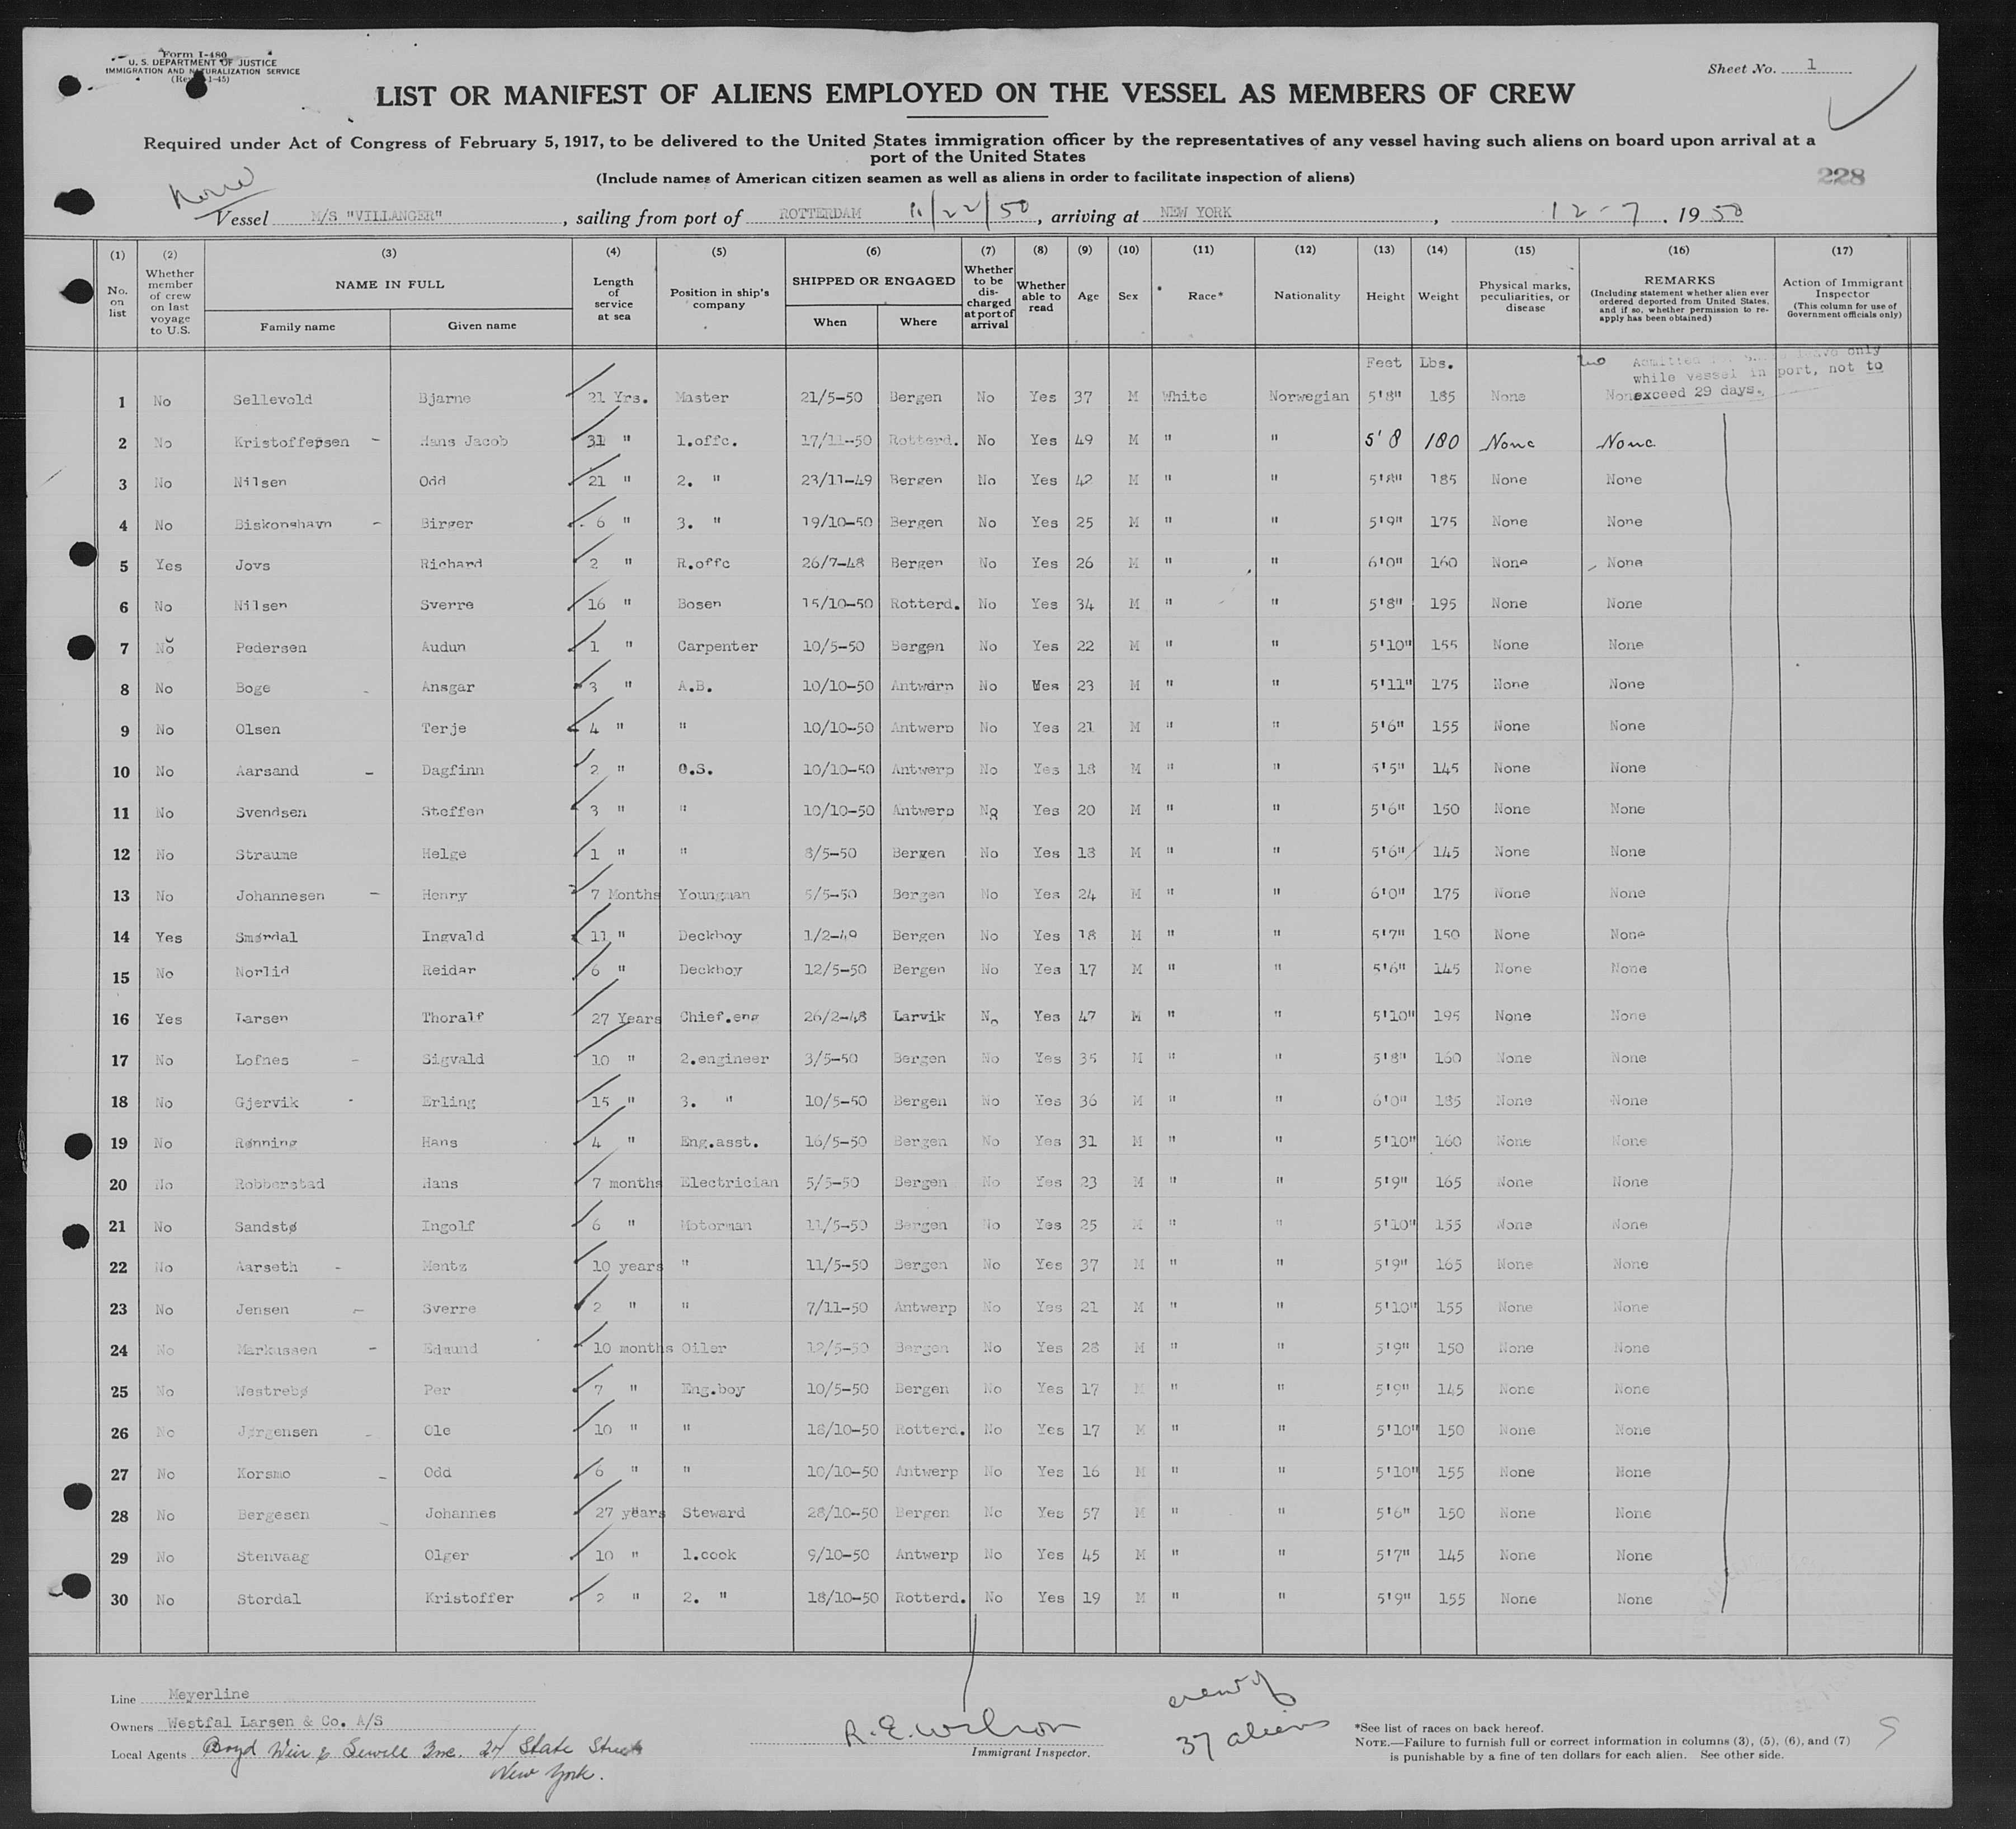 Form I-480
U. S. DEPARTMENT OF JUSTICE
IMMIGRATION AND NATURALIZATION SERVICE
Sheet No. 1
LIST OR MANIFEST OF ALIENS EMPLOYED ON THE VESSEL AS MEMBERS OF CREW
Required under Act of Congress of February 5, 1917, to be delivered to the United States immigration officer by the representatives of any vessel having such aliens on board upon arrival at a
port of the United States
(Include names of American citizen seamen as well as aliens in order to facilitate inspection of aliens)
228
Vessel M/S "VILLANGER", sailing from port of ROTTERDAM 11/22/50, arriving at NEW YORK, 12-7, 1950
(1) (2) (3) (4) (5) (6) (7) (8) (9) (10) (11) (12) (13) (14) (15) (16) (17)
No. on list Whether member of crew on last voyage to U.S. NAME IN FULL Family name Given name Length of service at sea Position in ship's company SHIPPED OR ENGAGED When Where Whether to be discharged at port of arrival Whether able to read Age Sex Race* Nationality Height Weight Physical marks, peculiarities, or disease REMARKS (Including statement whether alien ever ordered deported from United States, and if so, whether permission to reapply has been obtained) Action of Immigrant Inspector (This column for use of Government officials only)
Feet Lbs. Admitted leave only
while vessel in port, not to
exceed 29 days.
1 No Sellevold Bjarne 21 Yrs. Master 21/5-50 Bergen No Yes 37 M White Norwegian 5'8" 185 None None
2 No Kristoffersen - Hans Jacob 31 " 1.offc. 17/11-50 Rotterd. No Yes 49 M " " 5'8 180 None None
3 No Nilsen Odd 21 " 2. " 23/11-49 Bergen No Yes 42 M " " 5'8" 185 None None
4 No Biskopshavn - Birger 6 " 3. " 19/10-50 Bergen No Yes 25 M " " 5'9" 175 None None
5 Yes Jovs Richard 2 " R.offc 26/7-48 Bergen No Yes 26 M " " 6'0" 160 None None
6 No Nilsen Sverre 16 " Bosen 15/10-50 Rotterd. No Yes 34 M " " 5'8" 195 None None
7 No Pedersen Audun 1 " Carpenter 10/5-50 Bergen No Yes 22 M " " 5'10" 155 None None
8 No Boge - Ansgar 3 " A.B. 10/10-50 Antwerp No Yes 23 M " " 5'11" 175 None None
9 No Olsen Terje 4 " " 10/10-50 Antwerp No Yes 21 M " " 5'6" 155 None None
10 No Aarsand - Dagfinn 2 " O.S. 10/10-50 Antwerp No Yes 18 M " " 5'5" 145 None None
11 No Svendsen Steffen 3 " " 10/10-50 Antwerp No Yes 20 M " " 5'6" 150 None None
12 No Straume Helge 1 " " 8/5-50 Bergen No Yes 18 M " " 5'6" 145 None None
13 No Johannesen - Henry 7 Months Youngman 5/5-50 Bergen No Yes 24 M " " 6'0" 175 None None
14 Yes Smørdal Ingvald 11 " Deckboy 1/2-49 Bergen No Yes 18 M " " 5'7" 150 None None
15 No Norlid Reidar 6 " Deckboy 12/5-50 Bergen No Yes 17 M " " 5'6" 145 None None
16 Yes Larsen Thoralf 27 Years Chief.eng 26/2-48 Larvik No Yes 47 M " " 5'10" 195 None None
17 No Lofnes - Sigvald 10 " 2.engineer 3/5-50 Bergen No Yes 35 M " " 5'8" 160 None None
18 No Gjervik - Erling 15 " 3. " 10/5-50 Bergen No Yes 36 M " " 6'0" 185 None None
19 No Rønning Hans 4 " Eng.asst. 16/5-50 Bergen No Yes 31 M " " 5'10" 160 None None
20 No Robberstad Hans 7 months Electrician 5/5-50 Bergen No Yes 23 M " " 5'9" 165 None None
21 No Sandstø Ingolf 6 " Motorman 11/5-50 Bergen No Yes 25 M " " 5'10" 155 None None
22 No Aarseth - Mentz 10 years " 11/5-50 Bergen No Yes 37 M " " 5'9" 165 None None
23 No Jensen - Sverre 2 " " 7/11-50 Antwerp No Yes 21 M " " 5'10" 155 None None
24 No Markussen - Edmund 10 months Oiler 12/5-50 Bergen No Yes 28 M " " 5'9" 150 None None
25 No Westrebø Per 7 " Eng.boy 10/5-50 Bergen No Yes 17 M " " 5'9" 145 None None
26 No Jørgensen - Ole 10 " " 18/10-50 Rotterd. No Yes 17 M " " 5'10" 150 None None
27 No Korsmo - Odd 6 " " 10/10-50 Antwerp No Yes 16 M " " 5'10" 155 None None
28 No Bergesen - Johannes 27 years Steward 28/10-50 Bergen No Yes 57 M " " 5'6" 150 None None
29 No Stenvaag Olger 10 " 1.cook 9/10-50 Antwerp No Yes 45 M " " 5'7" 145 None None
30 No Stordal Kristoffer 2 " 2. " 18/10-50 Rotterd. No Yes 19 M " " 5'9" 155 None None
Line Meyerline
Owners Westfal Larsen & Co. A/S
Local Agents Boyd Weir & Sewell Inc. 24 State Street
New York.
R. E. Wilson
Immigrant Inspector.
crew of
37 aliens
*See list of races on back hereof.
NOTE.—Failure to furnish full or correct information in columns (3), (5), (6), and (7)
is punishable by a fine of ten dollars for each alien. See other side.